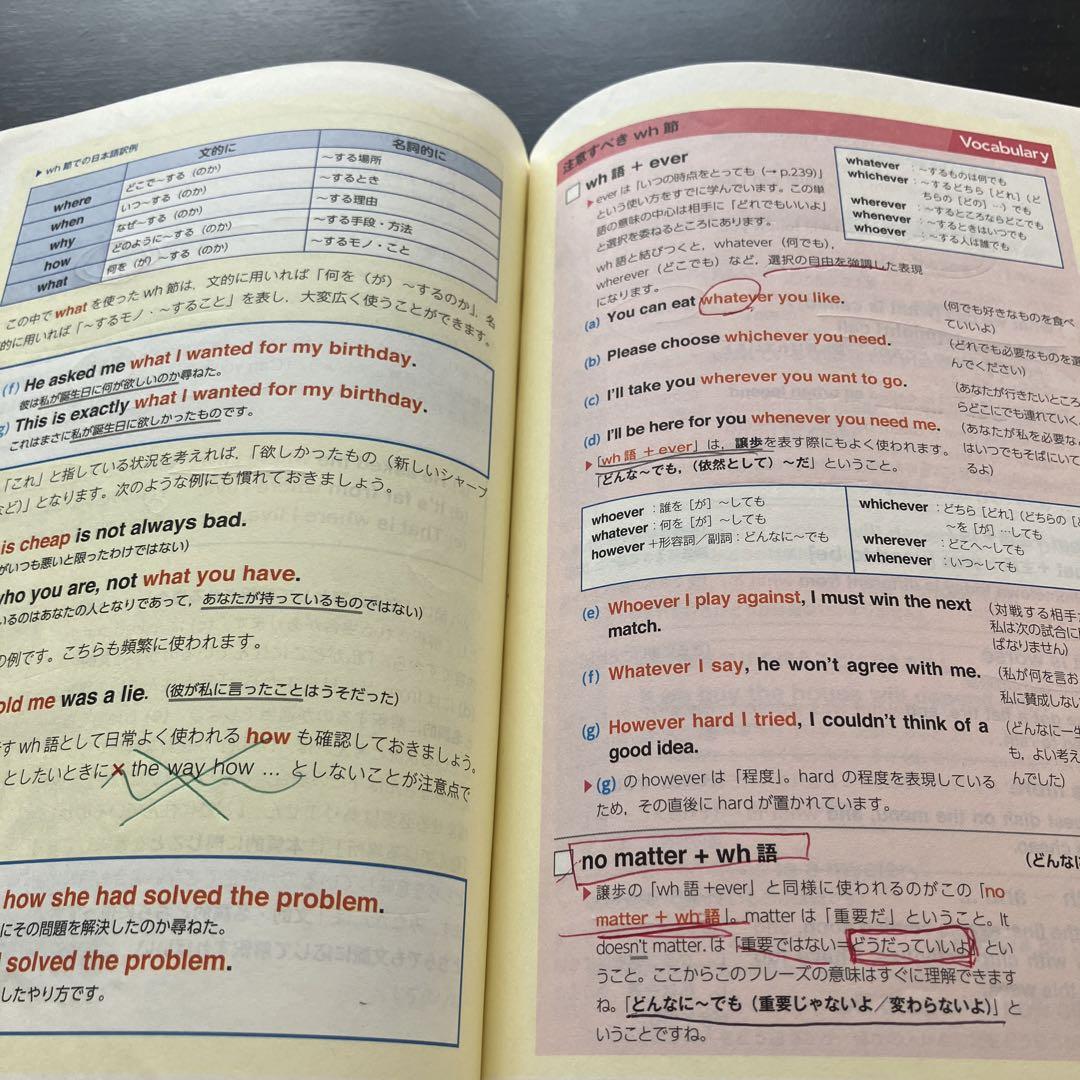 ▶ wh 節での日本語訳例
文的に 名詞的に
where どこで〜する（のか） 〜する場所
when いつ〜する（のか） 〜するとき
why なぜ〜する（のか） 〜する理由
how どのように〜する（のか） 〜する手段・方法
what 何を（が）〜する（のか） 〜するモノ・こと
この中で what を使った wh 節は，文的に用いれば「何を（が）〜するのか」，名
的に用いれば「〜するモノ・〜すること」を表し，大変広く使うことができます。
(f) He asked me what I wanted for my birthday.
彼は私が誕生日に何が欲しいのか尋ねた。
g) This is exactly what I wanted for my birthday.
これはまさに私が誕生日に欲しかったものです。
「これ」と指している状況を考えれば，「欲しかったもの（新しいシャープ
など）」となります。次のような例にも慣れておきましょう。
is cheap is not always bad.
がいつも悪いと限ったわけではない）
who you are, not what you have.
いるのはあなたの人となりであって，あなたが持っているものではない）
の例です。こちらも頻繁に使われます。
old me was a lie. （彼が私に言ったことはうそだった）
す wh 語として日常よく使われる how も確認しておきましょう。
としたいときに × the way how … としないことが注意点で
how she had solved the problem.
にその問題を解決したのか尋ねた。
solved the problem.
したやり方です。
注意すべき wh 節 Vocabulary
wh 語 + ever
▶ ever は「いつの時点をとっても（→ p.239）」
という使い方をすでに学んでいます。この単
語の意味の中心は相手に「どれでもいいよ」
と選択を委ねるところにあります。
wh 語と結びつくと，whatever（何でも），
wherever（どこでも）など，選択の自由を強調した表現
になります。
whatever ：〜するものは何でも
whichever ：〜するどちら［どれ］（ど
ちらの［どの］…）でも
wherever ：〜するところならどこでも
whenever ：〜するときはいつでも
whoever ：〜する人は誰でも
(a) You can eat whatever you like.
（何でも好きなものを食べ
ていいよ）
(b) Please choose whichever you need.
（どれでも必要なものを選
んでください）
(c) I'll take you wherever you want to go.
（あなたが行きたいところ
らどこにでも連れていく
(d) I'll be here for you whenever you need me.
（あなたが私を必要な
はいつでもそばにいて
るよ）
▶「wh 語 + ever」は，譲歩を表す際にもよく使われます。
「どんな〜でも，（依然として）〜だ」ということ。
whoever ：誰を［が］〜しても
whatever ：何を［が］〜しても
however ＋形容詞／副詞：どんなに〜でも
whichever ：どちら［どれ］（どちらの［ど
〜を［が］…しても
wherever ：どこへ〜しても
whenever ：いつ〜しても
(e) Whoever I play against, I must win the next
match.
（対戦する相手
私は次の試合に
ばなりません）
(f) Whatever I say, he won't agree with me.
（私が何を言お
私に賛成しない
(g) However hard I tried, I couldn't think of a
good idea.
（どんなに一生
も，よい考え
んでした）
▶ (g) の however は「程度」。hard の程度を表現している
ため，その直後に hard が置かれています。
no matter + wh 語
（どんな
▶ 譲歩の「wh 語 +ever」と同様に使われるのがこの「no
matter + wh 語」。matter は「重要だ」ということ。It
doesn't matter. は「重要ではない＝どうだっていいよ」とい
うこと。ここからこのフレーズの意味はすぐに理解できます
ね。「どんなに〜でも（重要じゃないよ／変わらないよ）」と
いうことですね。